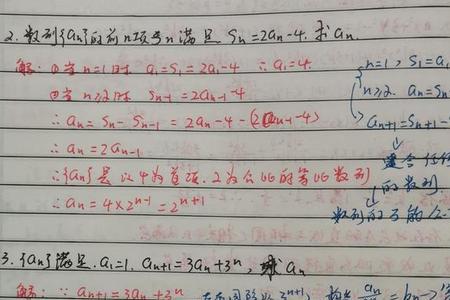 2. 数列{an}的前n项和Sn满足 Sn=2an-4. 求an.
解: ①当n=1时 a1=S1=2a1-4 ∴a1=4.
②当n≥2时 Sn-1=2an-1-4
∴an=Sn-Sn-1=2an-4-(2an-1-4)
∴an=2an-1
∴{an}是以4为首项. 2为公比的等比数列
∴an=4×2^n-1=2^n+1
n=1, S1=a1
n≥2. an=Sn
an+1=Sn+1-
适合任何
的数列.
数列的万能公
3. {an}满足. a1=1. an+1=3an+3^n, 求an
解: ∵an+1=3an+3^n